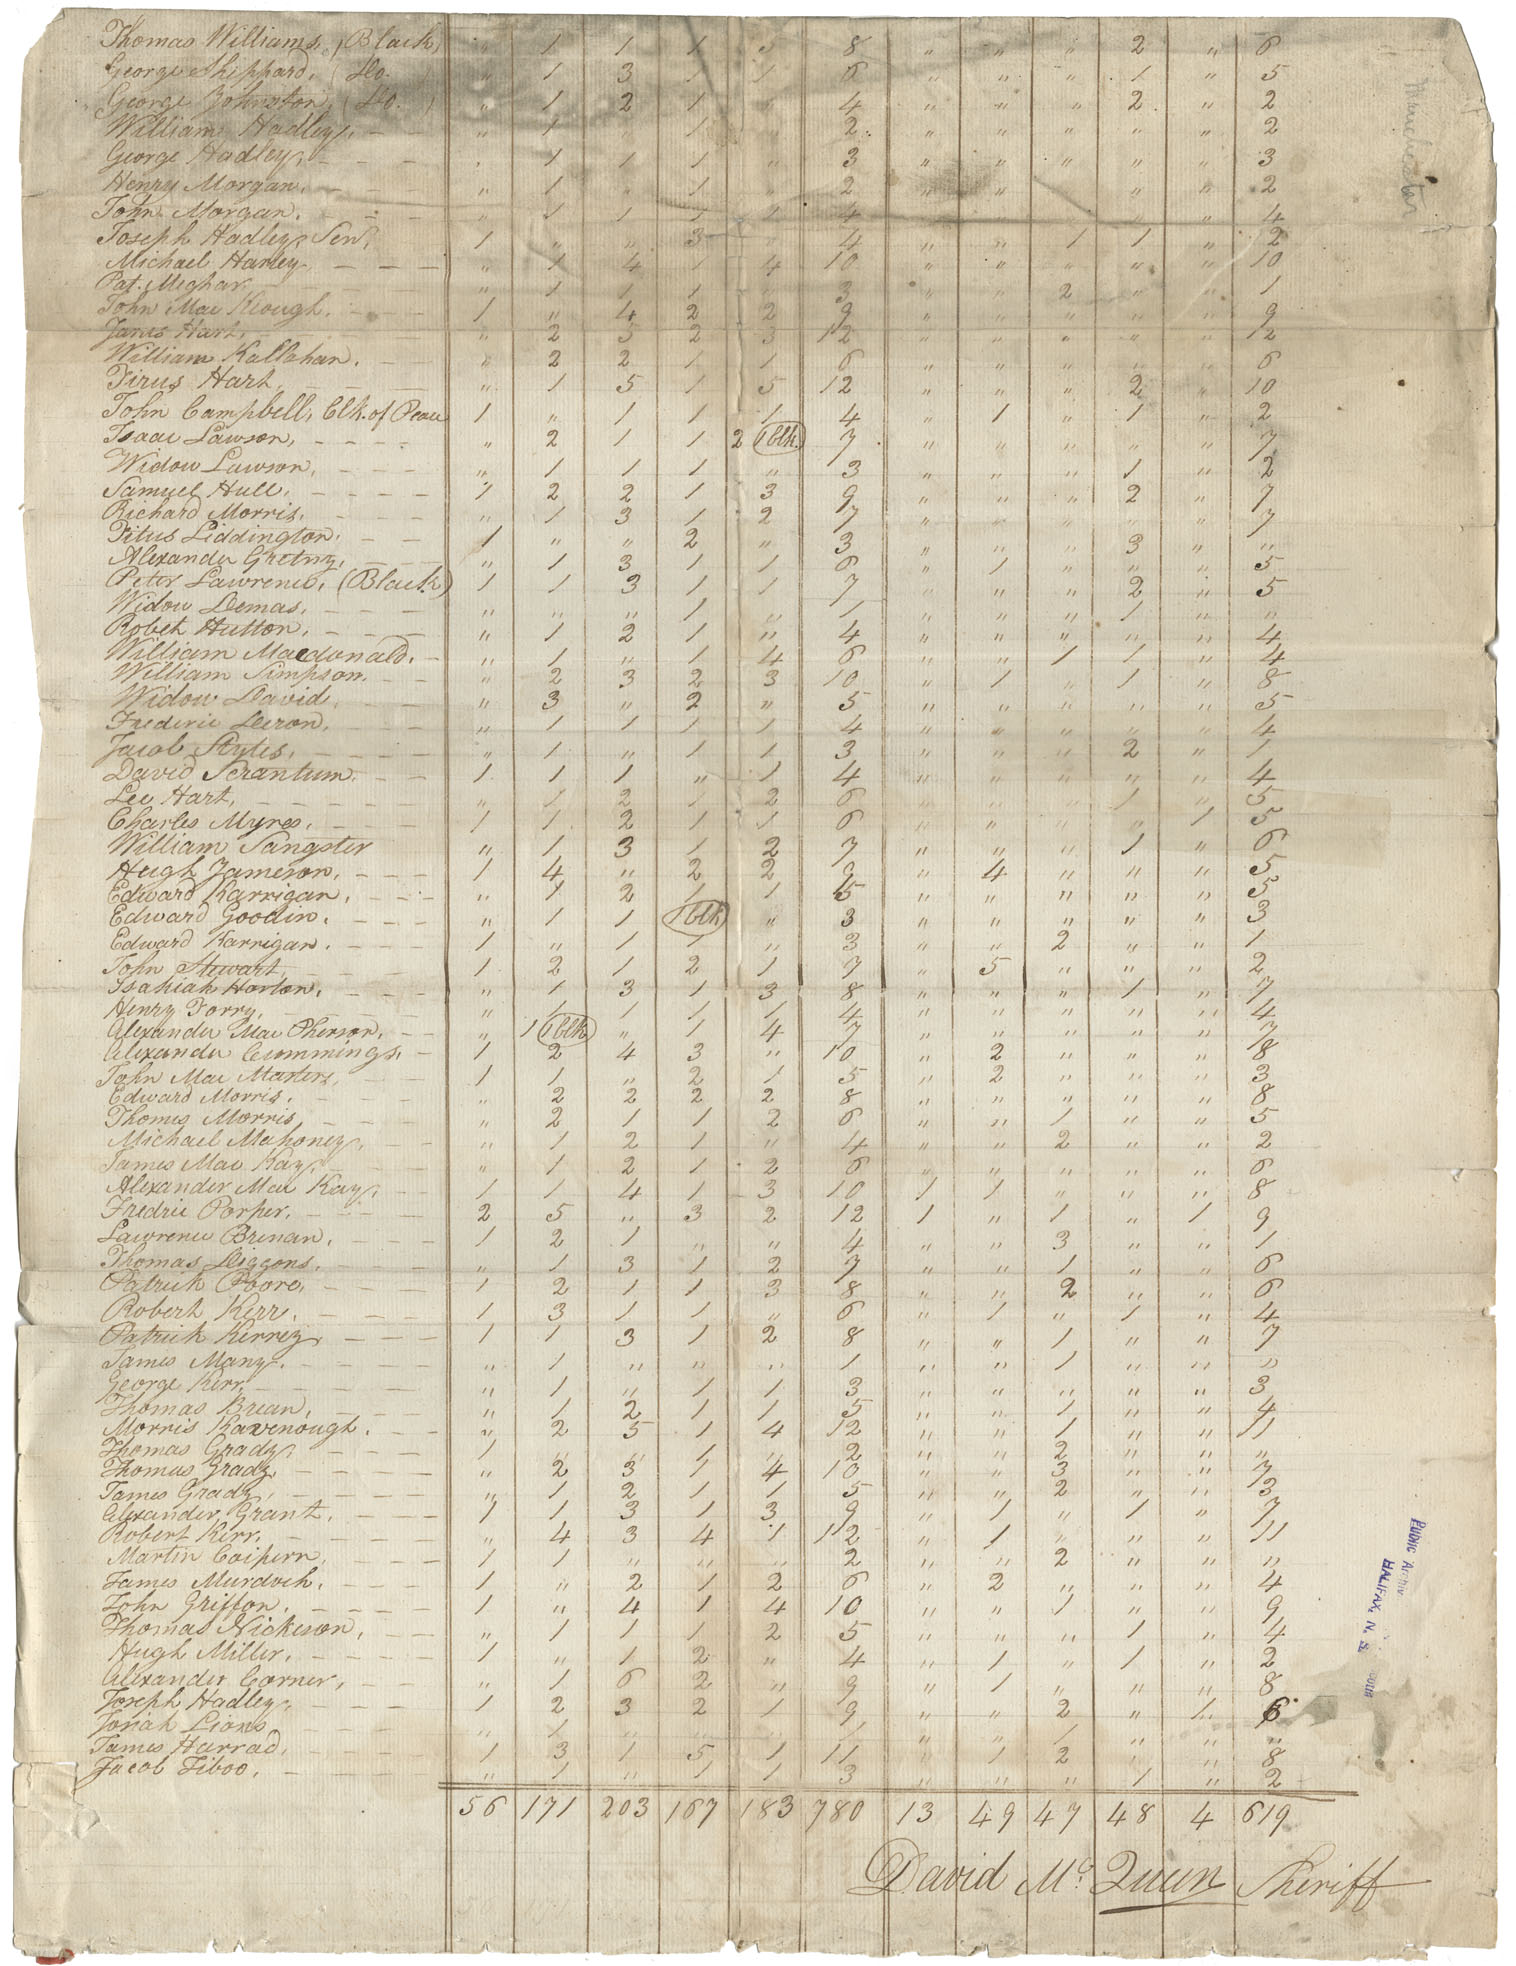 Thomas Williams, (Black) " 1 1 1 5 8 " " " 2 " 6
George Sheppard, (Do.) " 1 3 1 1 6 " " " 1 " 5
George Johnston, (Do.) " 1 2 1 " 4 " " " 2 " 2
William Hadley, " 1 " 1 " 2 " " " " " 2
George Hadley, " 1 1 1 " 3 " " " " " 3
Henry Morgan, " 1 " 1 " 2 " " " " " 2
John Morgan, " 1 1 1 1 4 " " " " " 4
Joseph Hadley, Senr. 1 " " 3 " 4 " " 1 1 " 2
Michael Harley " 1 4 1 4 10 " " " " " 10
Pat. Meghar " 1 1 1 " 3 " " 2 " " 1
John Mac Keough. 1 " 4 2 2 9 " " " " " 9
James Hart, " 2 5 2 3 12 " " " " " 12
William Kallahan. " 2 2 1 1 6 " " " " " 6
Tirus Hart, " 1 5 1 5 12 " " " 2 " 10
John Campbell, Clk. of Peace 1 " 1 1 1 4 " 1 " 1 " 2
Isaac Lawson, " 2 1 1 2 1 blk. 7 " " " " " 7
Widow Lawson, " 1 1 1 " 3 " " " 1 " 2
Samuel Hull, 1 2 2 1 3 9 " " " 2 " 7
Richard Morris, " 1 3 1 2 7 " " " " " 7
Titus Liddington. 1 " " 2 " 3 " " " 3 " "
Alexander " 1 3 1 1 6 " 1 " " " 5
Peter Lawrence, (Black) 1 1 3 1 1 7 " " " 2 " 5
Widow Demas, " " " 1 " 1 " " " 1 " "
Robert Hutton, " 1 2 1 " 4 " " " " " 4
William Macdonald. " 1 " 1 4 6 " " 1 1 " 4
William Simpson. " 2 3 2 3 10 " 1 " 1 " 8
Widow David, " 3 " 2 " 5 " " " " " 5
Frederic Deron, " 1 1 1 1 4 " " " " " 4
Jacob Styles, " 1 " 1 1 3 " " " 2 " 1
David Scrantum. 1 1 1 " 1 4 " " " " " 4
Lee Hart, " 1 2 1 2 6 " " " 1 " 5
Charles Myres. 1 1 2 1 1 6 " " " " 1 5
William Sangster " 1 3 1 2 7 " " " 1 " 6
Hugh Jameson, 1 4 " 2 2 9 " 4 " " " 5
Edward Karrigan, " 1 2 1 1 5 " " " " " 5
Edward Goodin. " 1 1 1 blk " 3 " " " " " 3
Edward Karrigan. 1 " 1 1 " 3 " " 2 " " 1
John Stewart 1 2 1 2 1 7 " 5 " " " 2
Isahiah Horton, " 1 3 1 3 8 " " " 1 " 7
Henry Torry, " 1 1 1 1 4 " " " " " 4
Alexander Mac Pherson, " 1 1 blk " 1 4 7 " " " " " 7
Alexander Cummings, 1 2 4 3 " 10 " 2 " " " 8
John Mac Masters, 1 1 " 2 1 5 " 2 " " " 3
Edward Morris, " 2 2 2 2 8 " " " " " 8
Thomas Morris " 2 1 1 2 6 " " 1 " " 5
Michael Mahoney, " 1 2 1 " 4 " " 2 " " 2
James Mac Kay, " 1 2 1 2 6 " " " " " 6
Alexander Mac Kay, 1 1 4 1 3 10 1 1 " " " 8
Fredric Porper, 2 5 " 3 2 12 1 " 1 " 1 9
Lawrence Brenan, 1 2 1 " " 4 " " 3 " " 1
Thomas Diggons, " 1 3 1 2 7 " " 1 " " 6
Patrick Poore, 1 2 1 1 3 8 " " 2 " " 6
Robert Kerr, 1 3 1 1 " 6 " 1 " 1 " 4
Patrick Kerrey, 1 1 3 1 2 8 " " 1 " " 7
James Many, " 1 " " " 1 " " 1 " " "
George Kerr, " 1 " 1 1 3 " " " " " 3
Thomas Brean, " 1 2 1 1 5 " " 1 " " 4
Morris Kavenough. " 2 5 1 4 12 " " 1 " " 11
Thomas Grady, 1 " " 1 " 2 " " 2 " " "
Thomas Grady, " 2 3 1 4 10 " " 3 " " 7
James Grady, " 1 2 1 1 5 " " 2 " " 3
Alexander Grant. 1 1 3 1 3 9 " 1 " 1 " 7
Robert Kerr, " 4 3 4 1 12 " 1 " " " 11
Martin 1 1 " " " 2 " " 2 " " "
James Murdoch. 1 " 2 1 2 6 " 2 " " " 4
John Griffon. 1 " 4 1 4 10 " " 1 " " 9
Thomas Nickeson, " 1 1 1 2 5 " " " 1 " 4
Hugh Miller. 1 " 1 2 " 4 " 1 " 1 " 2
Alexander Corner, " 1 6 2 " 9 " 1 " " " 8
Joseph Hadley, 1 2 3 2 1 9 " " 2 " 1 6
Josiah Lions " 1 " " " 1 " " 1 " " "
James Harrad, 1 3 1 5 1 11 " 1 2 " " 8
Jacob Tiboo, " 1 " 1 1 3 " " " 1 " 2
56 171 203 167 183 780 13 49 47 48 4 619
David Mc. Queen Sheriff
Manchester
Public Archiv
HALIFAX, N. S.